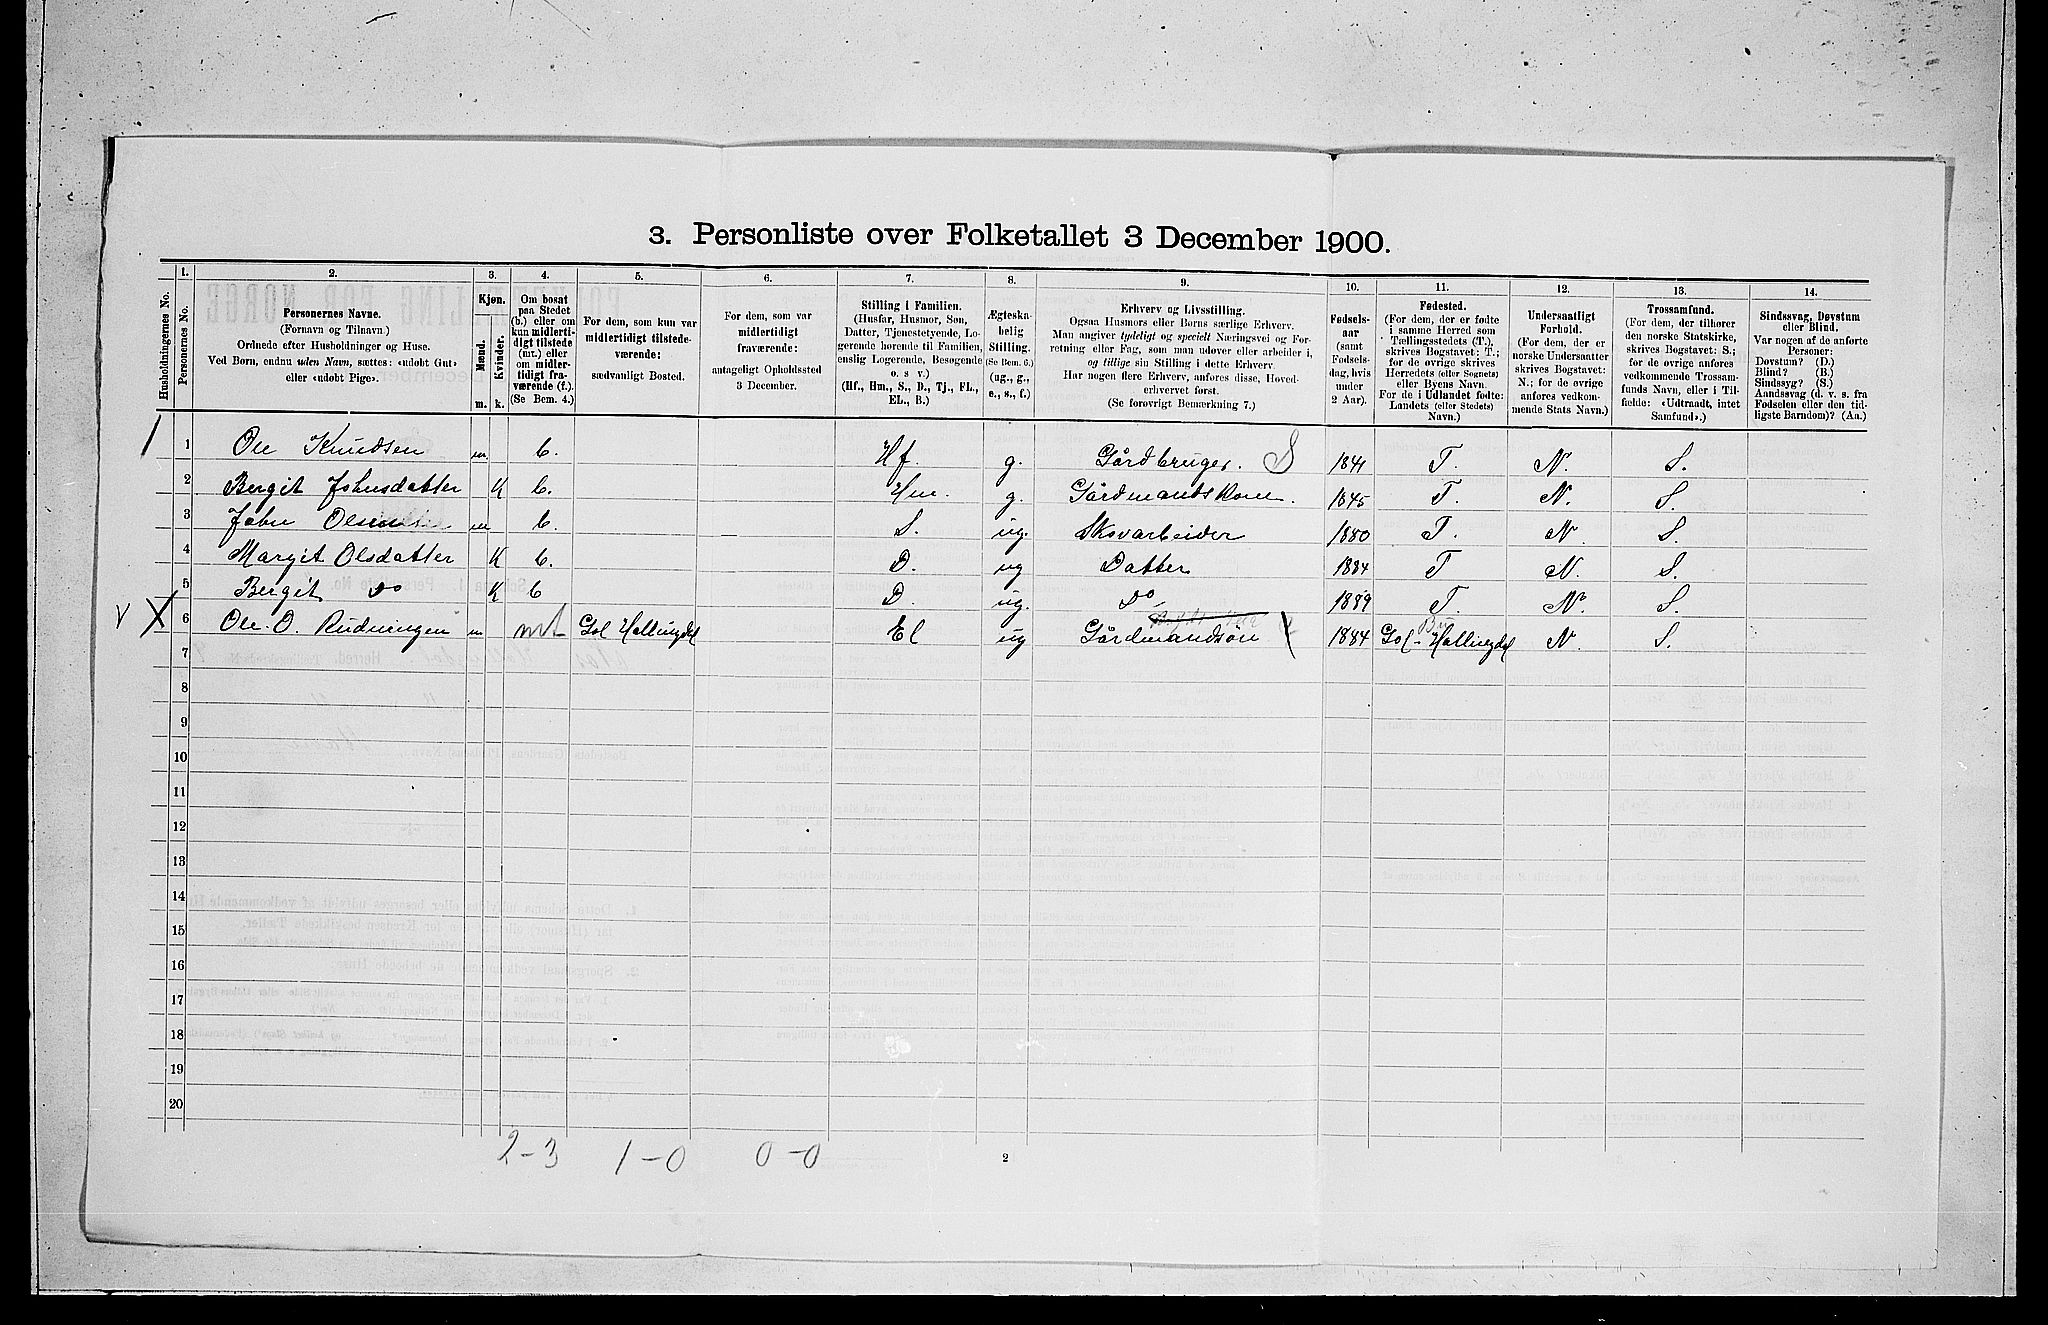 3. Personliste over Folketallet 3 December 1900.
1. 2. 3. 4. 5. 6. 7. 8. 9. 10. 11. 12. 13. 14.
Husholdningernes No.
Personernes No.
Personernes Navne.
(Fornavn og Tilnavn.)
Ordnede efter Husholdninger og Huse.
Ved Børn, endnu uden Navn, sættes: «udøbt Gut»
eller «udøbt Pige».
Kjøn.
Mænd.
Kvinder.
m. k.
Om bosat
paa Stedet
(b.) eller om
kun midlerti-
digt tilstede
(mt.) eller
om midler-
tidigt fra-
værende (f.).
(Se Bem. 4.)
For dem, som kun var
midlertidigt tilstede-
værende:
sædvanligt Bosted.
For dem, som var
midlertidigt
fraværende:
antageligt Opholdssted
3 December.
Stilling i Familien.
(Husfar, Husmor, Søn,
Datter, Tjenestetyende, Lo-
gerende hørende til Familien,
enslig Logerende, Besøgende
o. s v.)
(Hf., Hm., S., D., Tj., FL.,
EL., B.)
Ægteska-
belig
Stilling.
(Se Bem. 6.)
(ug., g.,
e., s., f.)
Erhverv og Livsstilling.
Ogsaa Husmors eller Børns særlige Erhverv.
Man angiver tydeligt og specielt Næringsvei og For-
retning eller Fag, som man udøver eller arbeider i,
og tillige sin Stilling i dette Erhverv.
Har nogen flere Erhverv, anføres disse, Hoved-
erhvervet først.
(Se forøvrigt Bemærkning 7.)
Fødsels-
aar
(samt
Fødsels-
dag, hvis
under
2 Aar).
Fødested.
(For dem, der er fødte
i samme Herred som
Tællingsstedets (T.),
skrives Bogstavet: T.;
for de øvrige skrives
Herredets (eller Sognets)
eller Byens Navn.
For de i Udlandet fødte:
Landets (eller Stedets)
Navn.)
Undersaatligt
Forhold.
(For dem, der er
norske Undersaatter
skrives Bogstavet:
N.; for de øvrige
anføres vedkom-
mende Stats Navn.)
Trossamfund.
(For dem, der tilhører
den norske Statskirke,
skrives Bogstavet: S.;
for de øvrige anføres
vedkommende Trossam-
funds Navn, eller i Til-
fælde: «Udtraadt, intet
Samfund».)
Sindssvag, Døvstum
eller Blind.
Var nogen af de anførte
Personer:
Døvstum? (D.)
Blind? (B.)
Sindssyg? (S.)
Aandssvag (d. v. s. fra
Fødselen eller den tid-
ligste Barndom)? (Aa.)
1 Ole Knudsen m. b. Hf. g. Gårdbruger. S 1841 T. N. S.
2 Bergit Johnsdatter K b. Hm. g. Gårdmandskone. 1845 T. N. S.
3 John Olsen m b. S. ug. Skovarbeider 1880 T. N. S.
4 Margit Olsdatter K b. D. ug Datter 1884 T N. S.
5 Bergit Do K b D. ug. Do 1889 T. N. S.
V X 6 Ole. O. Rudningen m mt Gol Hallingdal El ug Gårdmandsön 1884 Gol - Hallingdal N. S.
7
8
9
10
11
12
13
14
15
16
17
18
19
20
2-3 1-0 0-0
2